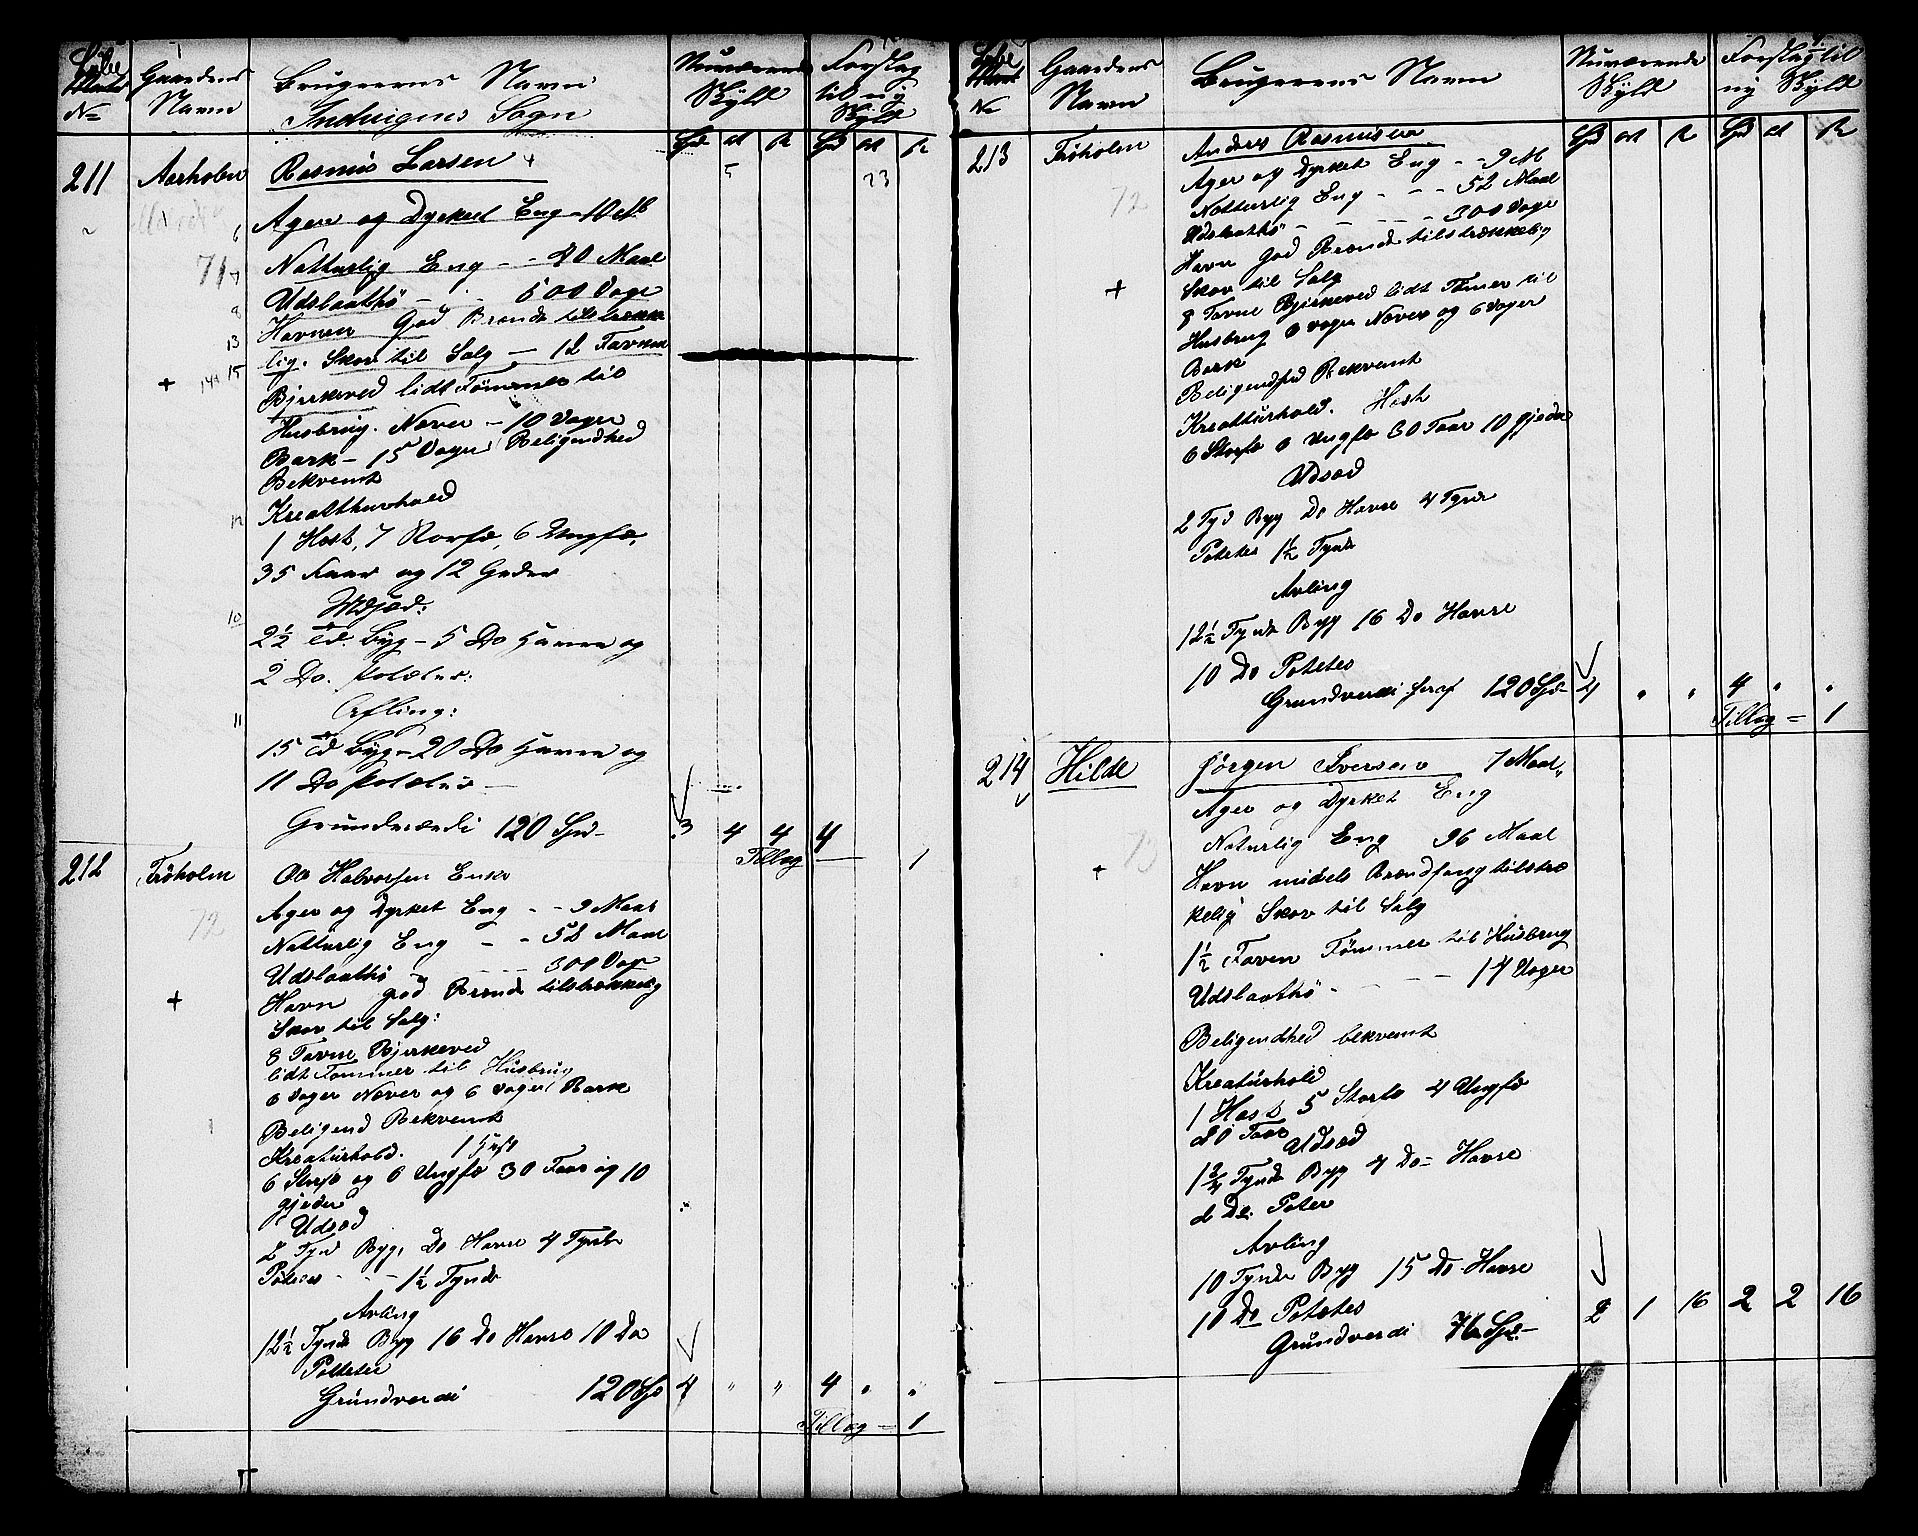 Løbe
No
Gaardens
Navn
Brugerens Navn
Indvigens Sogn
Nuværende
Skyld
Forslag
til ny
Skyld
211
Aarholm
Rasmus Larsen
Agere og Dyrked Eng - 10 Mb
Natturlig Eng - - 40 Maal
Udslaathø - - 500 Voge
Havnen God Brænde tilstrække
lig. Skov til Salg - 12 Favne
Bjerkeved lidt Tømmer til
Husbrug. Never - 10 Voger
Bark - 15 Voger Beligendhed
Bekvemt
Kreatturhold
1 Hest, 7 Storfæ, 6 Ungfæ,
35 Faar og 12 Geder
Udsæd:
2½ Td. Byg - 5 Do Havre og
2 Do. Potæter:
Afling:
15 Td Byg - 20 Do Havre og
11 Do Potæter -
Grundværdi 120 Spd - 3 4 4 4
Tillæg - 1
212
Trøholm
Ole Halvorsen Enke
Ager og Dyrket Eng - - 9 Maal
Natturlig Eng - - 52 Maal
Udslaathø - - 300 Voge
Havn god Brænde tilstrækkelig
Skov til Salg:
8 Favne Bjerkeved
lidt Tømmer til Husbrug
6 Voger Never og 6 Voger Bark
Beligend Bekvemt
Kreaturhold. 1 Hest
6 Storfæ og 6 Ungfæ 30 Faar og 10
gjeder
Udsæd
2 Tynd Byg, Do Havre 4 Tynde
Poteter - - 1½ Tynde
Avling
12½ Tynde Byg 16 Do Havre 10 Do
Potteter
Grundverdi 120 Spd 4 " " 4 " "
Tillæg - 1
Løbe
No
Gaardens
Navn
Brugerens Navn
Nuværende
Skyld
Forslag til
ny Skyld
213
Trøholm
72
Anders Rasmussen
Ager og Dyrket Eng - - 9 M
Natturlig Eng - - - 52 Maal
Udslaathø - - - 300 Voge
Havn God Brænde tilstrækkelig
Skov til Salg
8 Favne Bjerkeved lidt Tømer til
Husbrug 6 Voger Never og 6 Voger
Bark
Beligendhed Bekvemt
Kreatturhold. Hest
6 Storfæ 6 Ungfæ 30 Faar 10 gjeder
Udsæd
2 Tyd Byg Do Havre 4 Tynde
Poteter 1½ Tynde
Avling
12½ Tynde Byg 16 Do Havre
10 Do Poteter
Grundverdi 120 Spd - 4 " " 4 " "
Tillæg - 1
214
Hilde
Jørgen Iversen 7 Maal
Ager og Dyrket Eng
Naturlig Eng 36 Maal
Havn midels Brændfang tilstræ
kelig Skov til Salg
1½ Faven Tømmer til Husbrug
Udslaathø - - - 14 Voger
Beligendhed bekvemt
Kreaturhold
1 Hest 5 Storfæ 4 Ungfæ
20 Faar
Udsæd
1¾ Tynde Byg 4 Do - Havre
2 Do. Poteter
Avling
10 Tynde Byg 15 Do Havre
10 Do Poteter
Grundverdi 76 Spd - 2 1 16 2 2 16